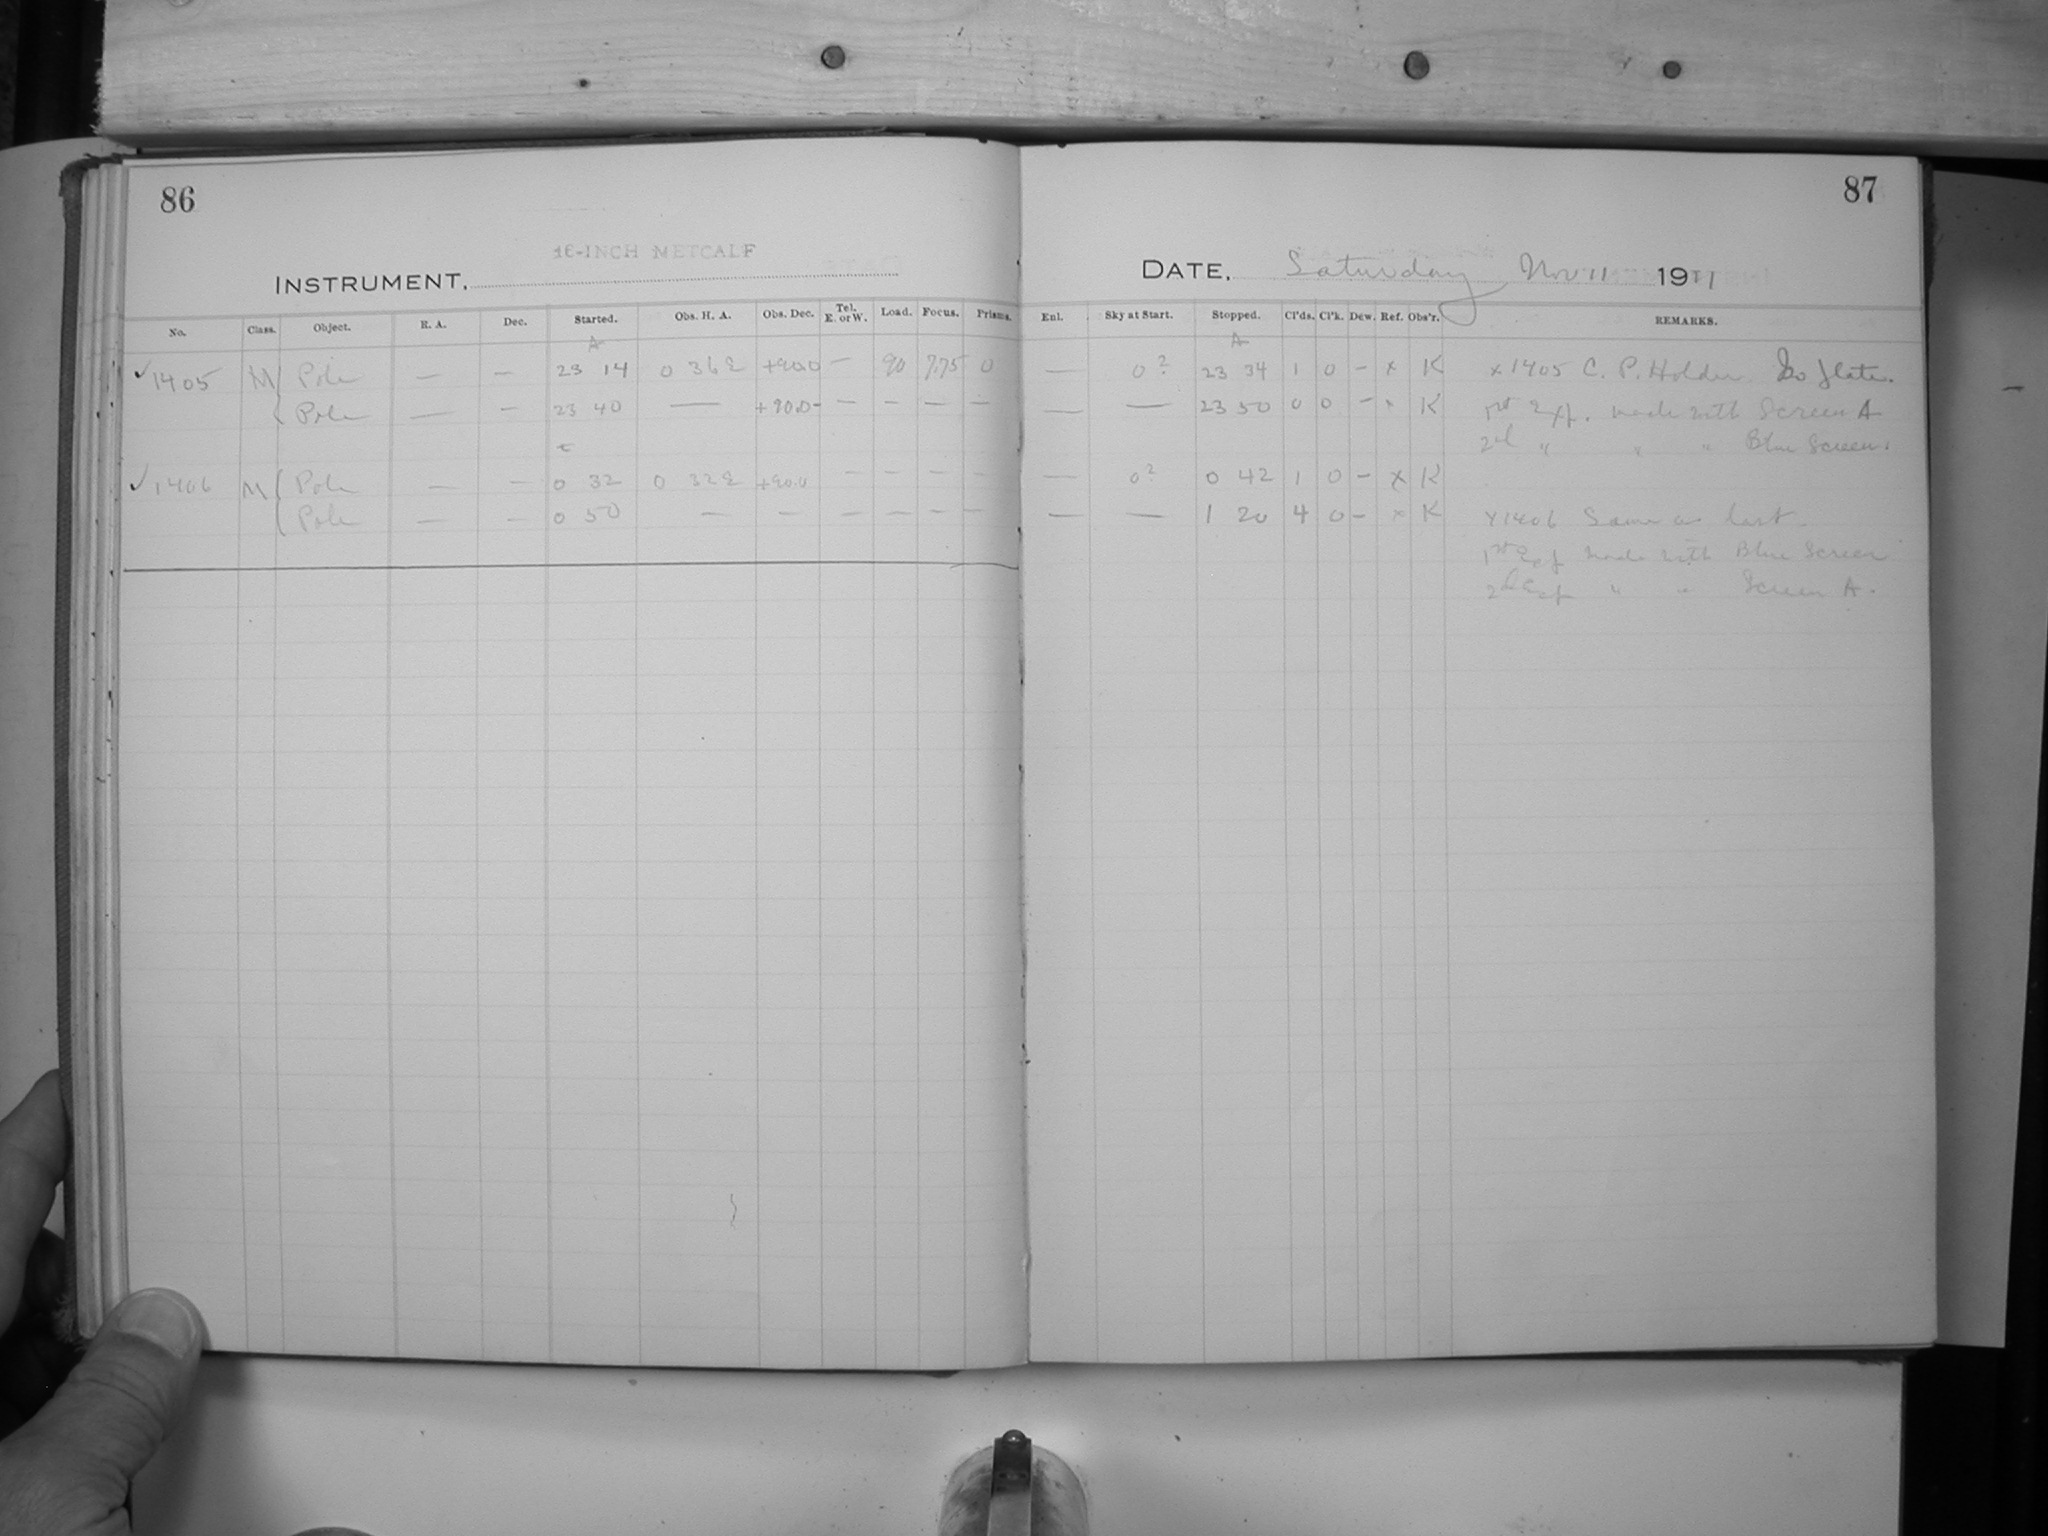 86
16-INCH METCALF
INSTRUMENT,
No. Class. Object. R. A. Dec. Started. Obs. H. A. Obs. Dec. Tel. E. or W. Load. Focus. Prisms.
A
✓1405 M { Pole — — 23 14 0 36 E +90.0 — 90 7.75 0
Pole — — 23 40 — +90.0 — — — —
✓1406 M { Pole — — 0 32 0 32 E +90.0 — — — —
Pole — — 0 50 — — — — — —
87
DATE, Saturday Nov 11 1911
Enl. Sky at Start. Stopped. Cl'ds. Cl'k. Dew. Ref. Obs'r. REMARKS.
A
— 0? 23 34 1 0 – x K x 1405 C. P. Holder Iso plate.
— — 23 50 0 0 – x K 1st Exp. made with Screen A
2d " " " Blue Screen.
— 0? 0 42 1 0 – x K
— — 1 20 4 0 – x K x1406 Same as last.
1st Exp made with Blue Screen
2d Exp " " Screen A.